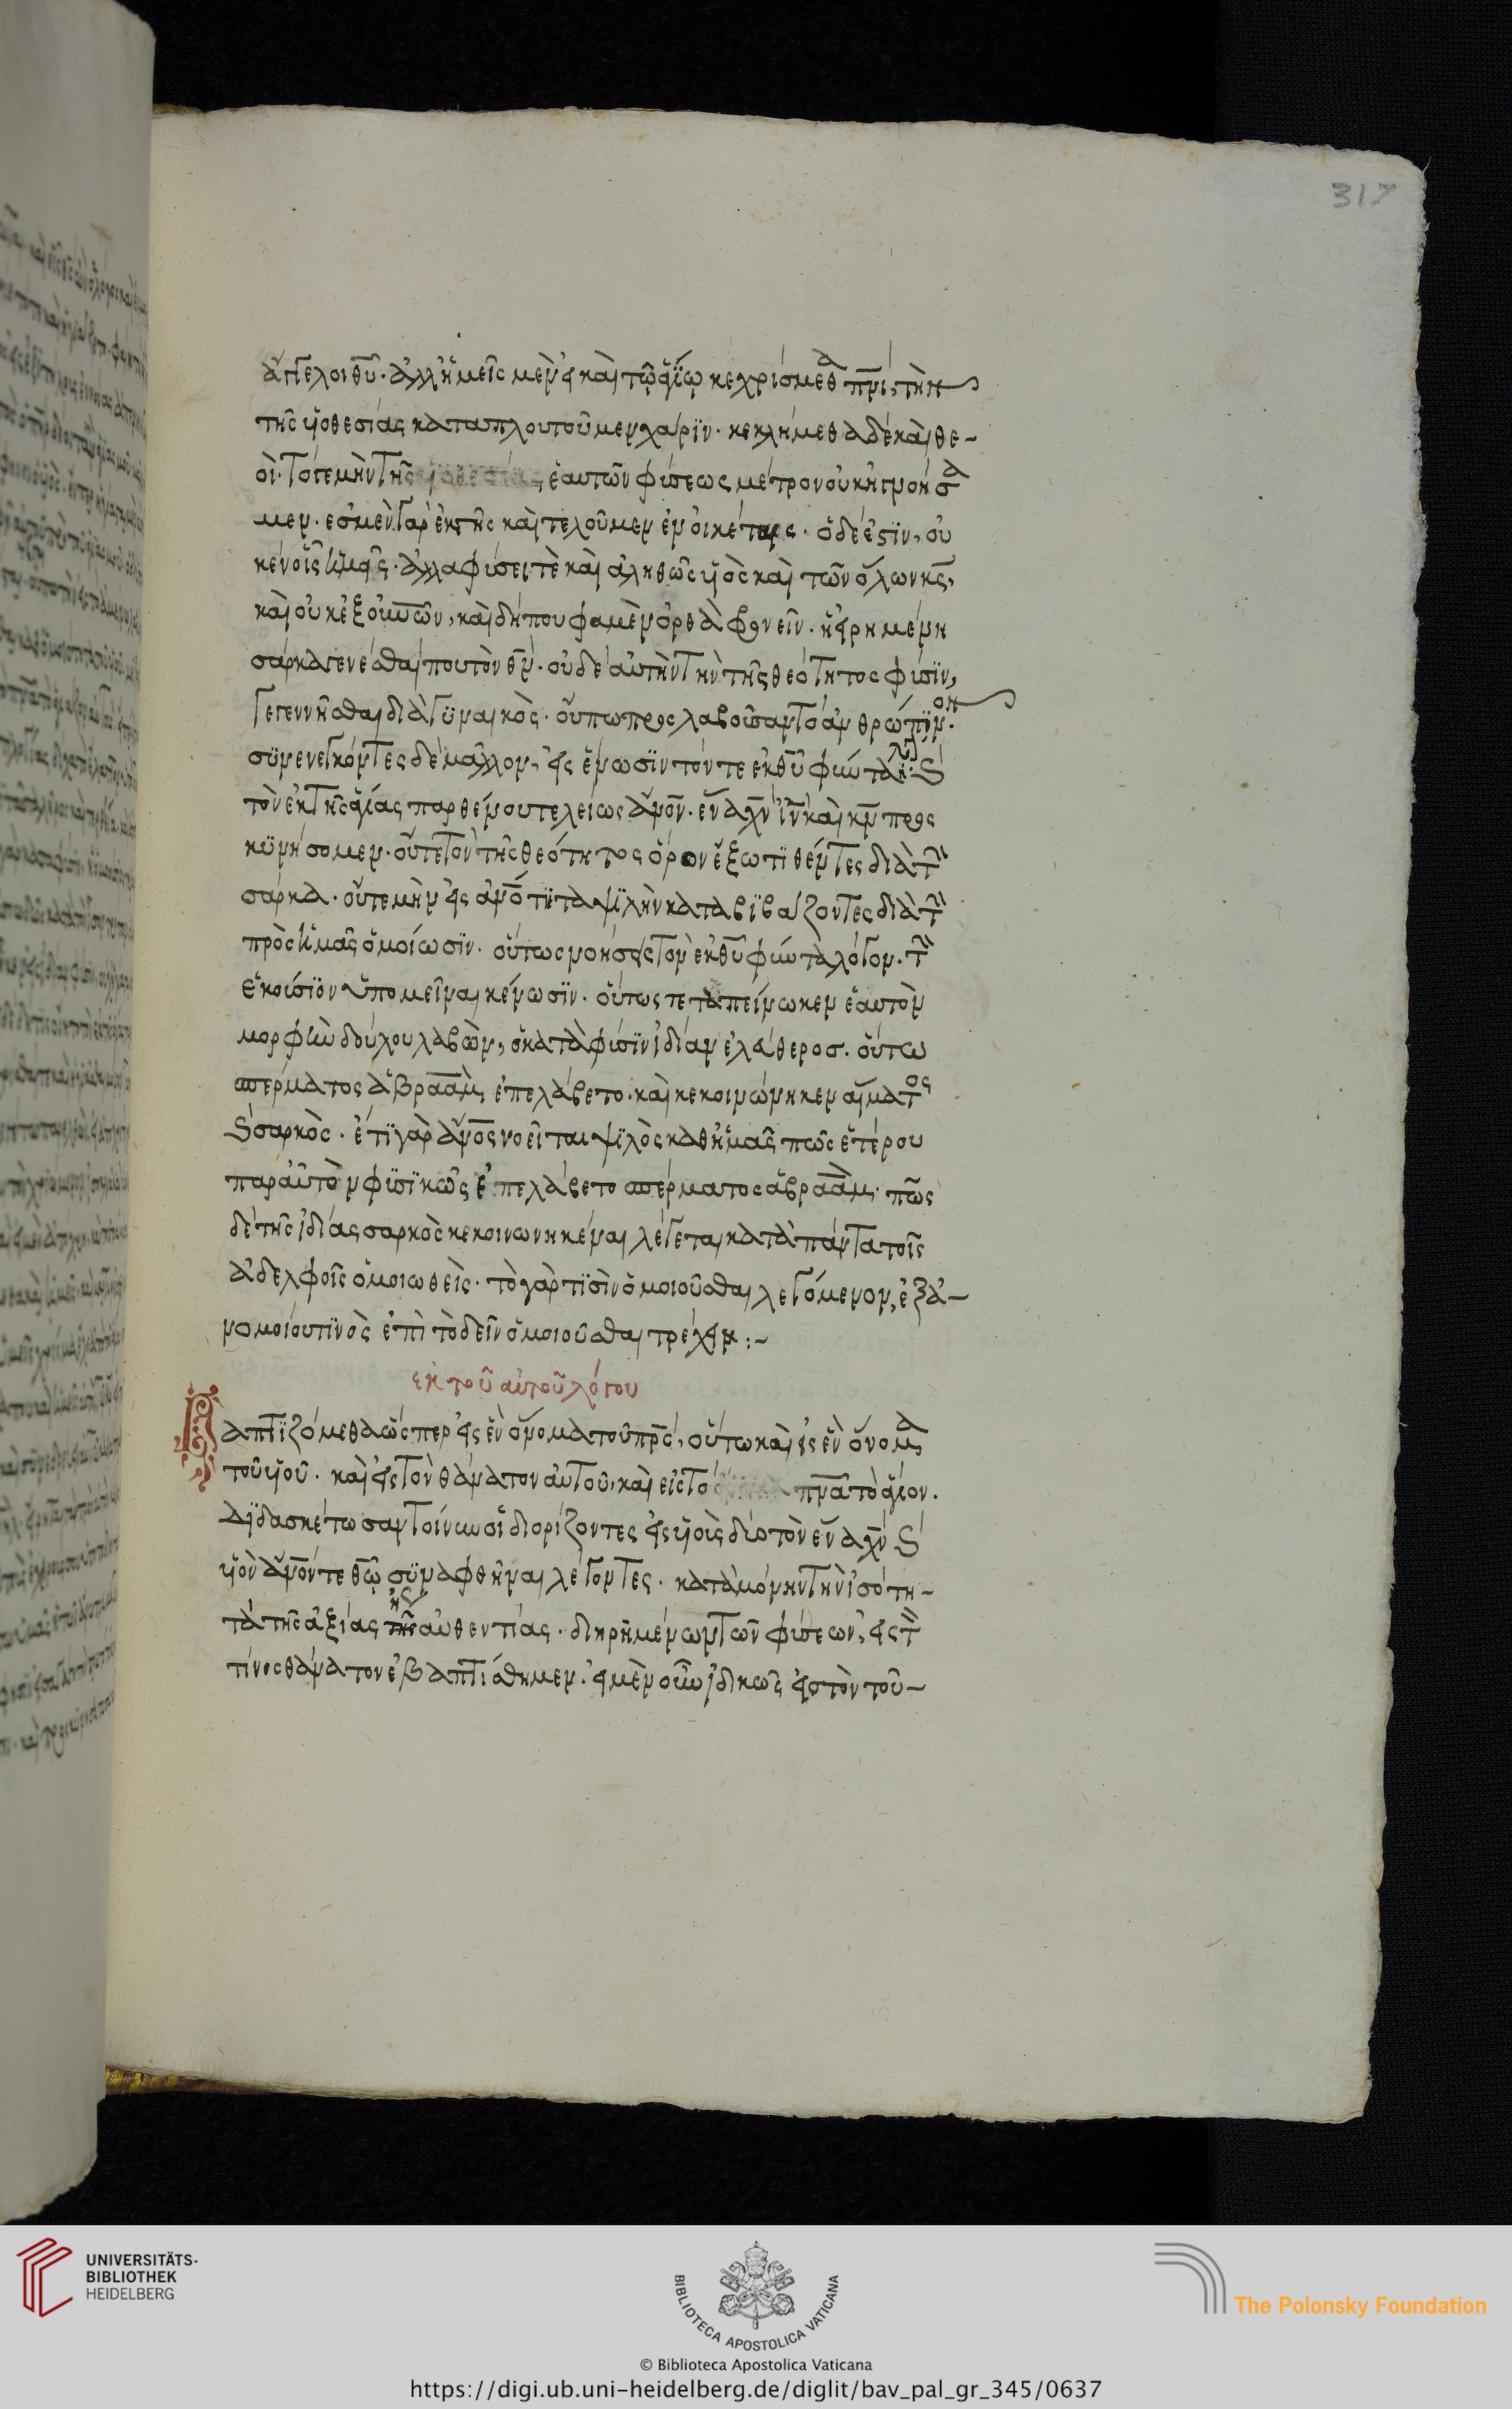 317
ἄγγελοι θυ̅. ἀλλ' ἡμεῖς μὲν εἰ καὶ τῷ ἁγίῳ κεχρίσμεθα πνι, τὴν
τῆς υἱοθεσίας καταπλουτοῦμεν χάρϊν. κεκλήμεθα δὲ καὶ θε-
οὶ. τό γε μὴν τῆς ἑαυτῶν φύσεως μέτρον οὐκ ἠγνοήσα
μεν. ἐσμὲν γὰρ ἐκ γῆς καὶ τελοῦμεν ἐν οἰκέταις. ὁ δέ ἐστϊν, οὐ
κἐν οἷς ἡμεῖς. ἀλλὰ φύσει τὲ καὶ ἀληθῶς υἱὸς καὶ τῶν ὅλων κς̅,
καὶ οὐκ ἐξ οὐνῶν, καὶ δήπου φαμὲν ὀρθὰ φρονεῖν. ᾑρημένη
σάρκα γενέσθαι που τὸν θν̅. οὐδὲ αὐτὴν τὴν τῆς θεότητος φύσϊν,
γεγεννῆσθαι διὰ γϋναικὸς. οὔπω προσλαβοῦσαν τὸ ἀνθρώπϊνον.
σϋνενεγκόντες δὲ μᾶλλον, εἰς ἕνωσϊν τόν τε ἐκ θυ̅ φύντα λόγον καὶ
τὸν ἐκ τῆς ἁγίας παρθένου τελείως ἄνον̅. ἕνα χν̅ ιν̅ καὶ κν̅ προσ
κϋνήσομεν. οὔτε τὸν τῆς θεότητος ὅρον ἔξω τϊθέντες διὰ τὴν
σάρκα. οὔτε μὴν εἰς ἀνό̅τητα ψϊλὴν καταβϊβάζοντες διὰ τὴν
πρὸς ἡμᾶς ὁμοίωσϊν. οὕτως νοήσεις τὸν ἐκ θυ̅ φύντα λόγον. τὴν
ἑκούσϊον ὑπομεῖναι κένωσϊν. οὕτως τεταπείνωκεν ἑαυτὸν
μορφὴν δούλου λαβὼν, ὁ κατὰ φύσϊν ἰδίαν ἐλεύθερος. οὕτω
σπέρματος ἀβραὰμ, ἐπελάβετο. καὶ κεκοινώνηκεν αἵματος
καὶ σαρκὸς. ἔτϊ γὰρ ἄνος̅ νοεῖται ψϊλὸς καθ' ἡμᾶς πῶς ἑτέρου
παρ' αὐτὸν φϋσϊκῶς ἐπελάβετο σπέρματος ἀβραὰμ. πῶς
δὲ τῆς ἰδίας σαρκὸς κεκοινωνηκέναι λέγεται κατὰ πάντα τοῖς
ἀδελφοῖς ὁμοιωθεὶς. τὸ γάρ τϊσὶν ὁμοιοῦσθαι λεγόμενον, ἐξ ἀ-
νομοίου τϊνὸς ἐπὶ τὸ δεῖν ὁμοιοῦσθαι τρέχειν:-
ἐκ τοῦ αὐτοῦ λόγου
Βαπτϊζόμεθα ὥσπερ εἰς ἓν ὄνομα τοῦ πρς̅, οὕτω καὶ εἰς ἓν ὄνομα
τοῦ υἱοῦ. καὶ εἰς τὸν θάνατον αὐτοῦ, καὶ εἰς τὸ πνα̅ τὸ ἅγιον.
διδασκέτωσαν τοίνυν οἱ διορίζοντες εἰς υἱοὺς δύο τὸν ἕνα χν̅ καὶ
υἱὸν ἄνον̅ τε θῷ σϋναφθῆναι λέγοντες. κατὰ μόνην τὴν ἰσότη-
τα τῆς ἀξίας ἢ τῆς αὐθεντίας. διηρημένων τῶν φύσεων, εἰς τὴν
τίνος θάνατον ἐβαπτίσθημεν. εἰ μὲν οὖν ἰδικῶς εἰς τὸν τοῦ-
UNIVERSITÄTS-
BIBLIOTHEK
HEIDELBERG
BIBLIOTECA APOSTOLICA VATICANA
The Polonsky Foundation
© Biblioteca Apostolica Vaticana
https://digi.ub.uni-heidelberg.de/diglit/bav_pal_gr_345/0637